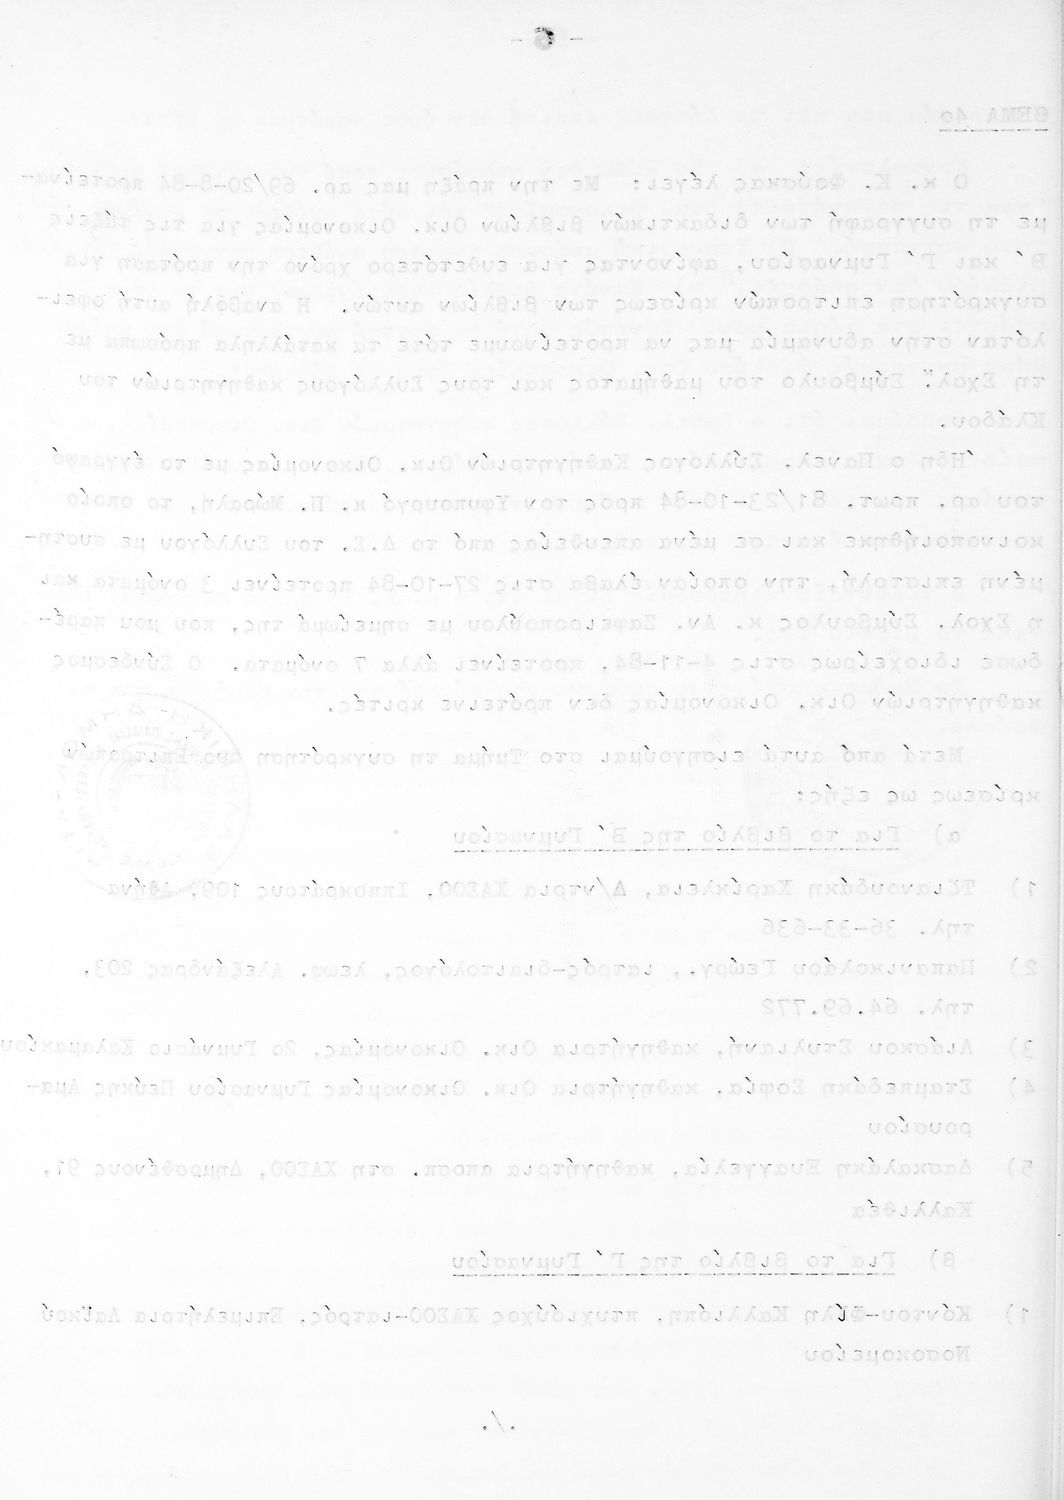 ΘΕΜΑ 4ο
Ο κ. Κ. Φούσκας λέγει: Με την πράξη μας αρ. 69/20-8-84 προτείνα-
με τη συγγραφή των διδακτικών βιβλίων Οικ. Οικονομίας για τις τάξεις
Β΄ και Γ΄ Γυμνασίου, αφίνοντας για ευθετότερο χρόνο την πρόταση για
συγκρότηση επιτροπών κρίσεως των βιβλίων αυτών. Η αναβολή αυτή οφει-
λόταν στην αδυναμία μας να προτείνουμε τότε τα κατάλληλα πρόσωπα με
τη Σχολ. Σύμβουλο του μαθήματος και τους Συλλόγους καθηγητριών του
Κλάδου.
Ήδη ο Πανελ. Σύλλογος Καθηγητριών Οικ. Οικονομίας με το έγγραφό
του αρ. πρωτ. 81/23-10-84 προς τον Υφυπουργό κ. Π. Μώραλη, το οποίο
κοινοποιήθηκε και σε μένα απευθείας από το Δ.Σ. του Συλλόγου με συστη-
μένη επιστολή, την οποίαν έλαβα στις 27-10-84 προτείνει 3 ονόματα και
η Σχολ. Σύμβουλος κ. Αν. Ζαφειροπούλου με σημείωμά της, που μου παρέ-
δωσε ιδιοχείρως στις 4-11-84, προτείνει άλλα 7 ονόματα. Ο Σύνδεσμος
καθηγητριών Οικ. Οικονομίας δεν πρότεινε κριτές.
Μετά από αυτά εισηγούμαι στο Τμήμα τη συγκρότηση δυο Επιτροπών
κρίσεως ως εξής:
α) Για το βιβλίο της Β΄ Γυμνασίου
1) Τζιανουδάκη Χαρίκλεια, Δ/ντρια ΧΑΣΟΟ, Ιπποκράτους 109, Αθήνα
τηλ. 36-33-636
2) Παπανικολάου Γεώργ., ιατρός-διαιτολόγος, λεωφ. Αλεξάνδρας 203,
τηλ. 64.69.772
3) Λιάσκου Στυλιανή, καθηγήτρια Οικ. Οικονομίας, 2ο Γυμνάσιο Καλαμακίου
4) Σταμπεδάκη Σοφία, καθηγήτρια Οικ. Οικονομίας Γυμνασίου Πεύκης Αμα-
ρουσίου
5) Δασκαλάκη Ευαγγελία, καθηγήτρια αποσπ. στη ΧΑΣΟΟ, Δημοσθένους 91,
Καλλιθέα
β) Για το βιβλίο της Γ΄ Γυμνασίου
1) Κόντου-Φίλη Καλλιόπη, πτυχιούχος ΧΑΣΟΟ-ιατρός, Επιμελήτρια Λαϊκού
Νοσοκομείου
./.